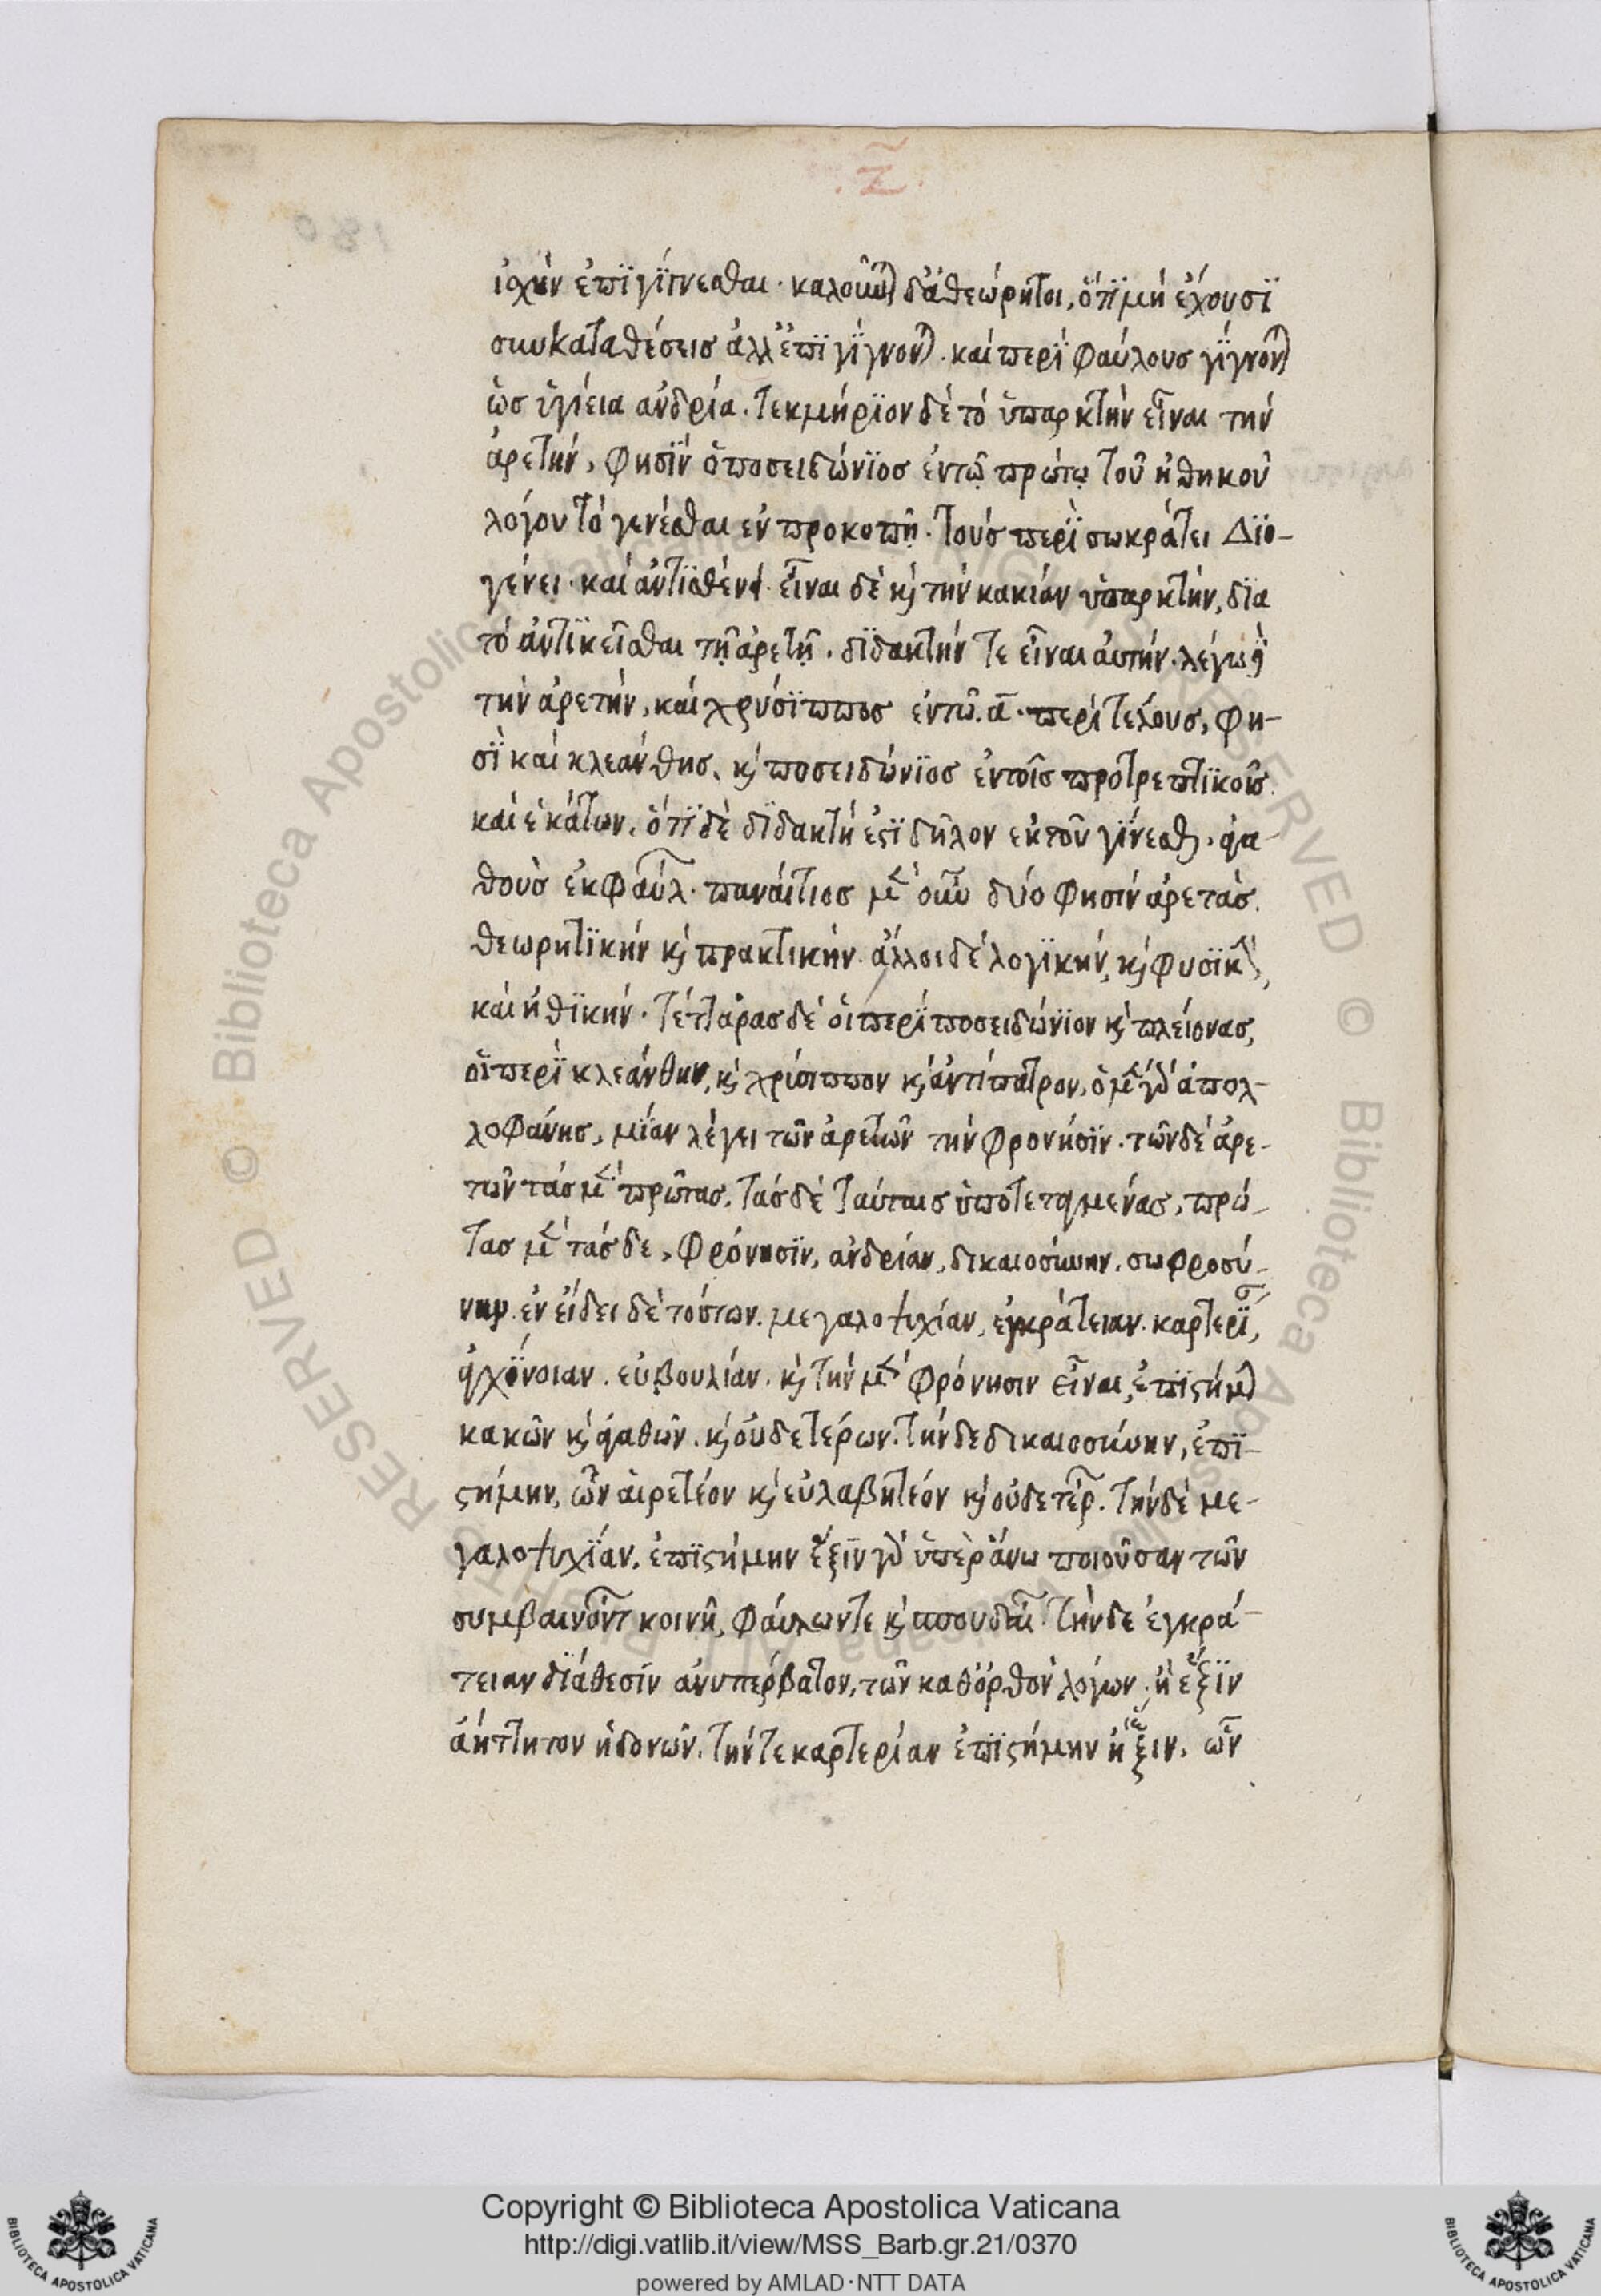 .ζ̃.
ἰχὴν ἐπϊγίγνεσθαι· καλοῦνται δ' ἀθεώρητοι, ὅτϊ μὴ ἔχουσϊ
συγκαταθέσεισ ἀλλ' ἐπϊγίγνονται. καὶ περὶ φαύλουσ γίγνονται
ὡσ ὑγίεια ἀνδρία. τεκμήρϊον δὲ τὸ ὑπαρκτὴν εἶναι τὴν
ἀρετήν, φησὶν ὁ ποσειδώνϊοσ ἐν τῷ πρώτῳ τοῦ ἠθικοῦ
λόγου τὸ γενέσθαι ἐν προκοπῇ. τοὺσ περὶ σωκράτει Διο-
γένει· καὶ ἀντϊσθένη. εἶναι δὲ κ τὴν κακίαν ὑπαρκτὴν, δϊα
τὸ ἀντϊκεῖσθαι τῇ ἀρετῇ. διδακτήν τε εἶναι αὐτήν. λέγω δὲ
τὴν ἀρετὴν, καὶ χρύσϊπποσ ἐν τῶ. ᾱ. περὶ τέλουσ, φη-
σὶ καὶ κλεάνθησ. κ ποσειδώνϊοσ ἐν τοῖσ προτρεπτϊκοῖσ.
καὶ ἑκάτων. ὅτϊ δὲ διδακτή ἐστϊ δῆλον ἐκ τοῦ γίνεσθαι. ἀγα-
θοὺσ ἐκ φαύλ. παναίτιοσ μὲν οὖν δύο φησὶν ἀρετάσ.
θεωρητϊκὴν κ πρακτικήν. ἄλλοι δὲ λογϊκὴν, κ φυσϊκὴν,
καὶ ἠθϊκήν. τέτταρασ δὲ οἱ περὶ ποσειδώνϊον κ πλείονασ,
οἱ περὶ κλεάνθην, κ χρίσιππον κ ἀντίπατρον, ὁ μὲν γὰρ ἀπολ-
λοφάνησ, μίαν λέγει τῶν ἀρετῶν τὴν φρονήσϊν. τῶν δὲ ἀρε-
τῶν τὰσ μὲν πρῶτασ, τὰσ δὲ ταύταισ ὑποτεταγμένασ, πρώ-
τασ μὲν τάσδε, φρόνησϊν, ἀνδρίαν, δικαιοσύνην, σωφροσύ-
νην. ἐν εἴδει δὲ τούτων. μεγαλοψυχίαν, ἐγκράτειαν. καρτερί,
ἀγχϊνοιαν. εὐβουλίαν. κ τὴν μὲν φρόνησιν εἶναι, ἐπϊστήμην
κακῶν κ ἀγαθῶν. κ οὐδετέρων. τὴν δε δικαιοσύνην, ἐπϊ-
στήμην, ὧν αἱρετέον κ εὐλαβητέον κ οὐδετέρ. τὴν δὲ με-
γαλοψυχϊαν, ἐπϊστήμην ἕξϊν γὰρ ὑπεράνω ποιοῦσαν τῶν
συμβαινόντ κοινῆ, φαύλων τε κ σπουδαι. τὴν δε ἐγκρά-
τειαν δϊάθεσίν ἀνυπέρβατον, τῶν καθ' ὀρθὸν λόγων. ἢ ἕξϊν
ἀήττητον ἡδονῶν. τήν τε καρτερίαν ἐπϊστήμην ἢ ἕξιν. ὧν
Copyright © Biblioteca Apostolica Vaticana
http://digi.vatlib.it/view/MSS_Barb.gr.21/0370
powered by AMLAD·NTT DATA